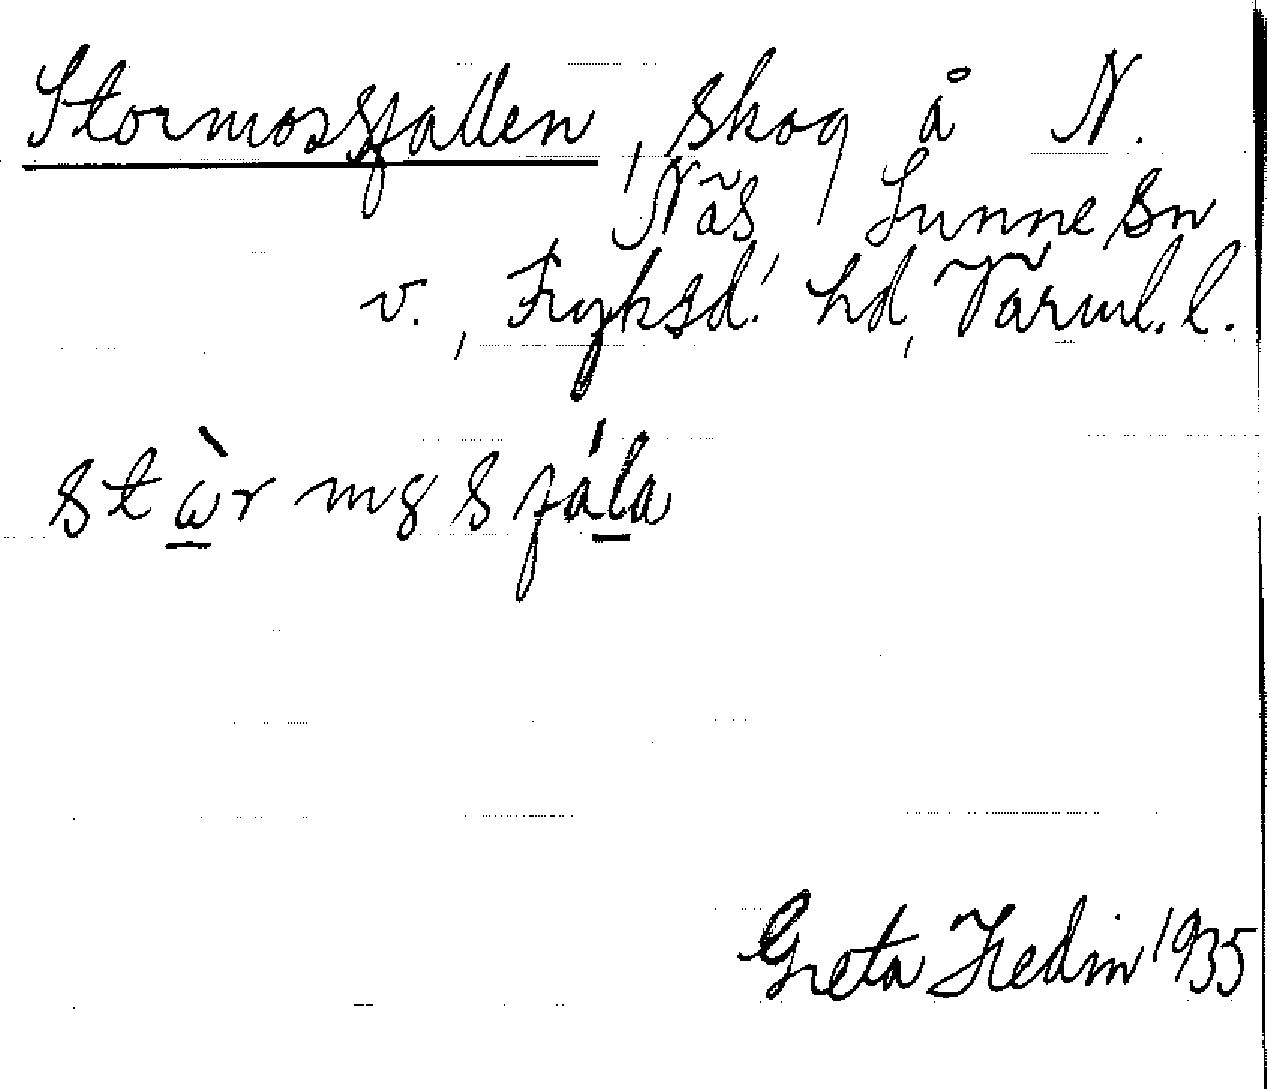 Stormossfallen, skog å N.
Näs Sunne sn
v., Fryksd. hd, Värml. l.
Greta Hedin 1935